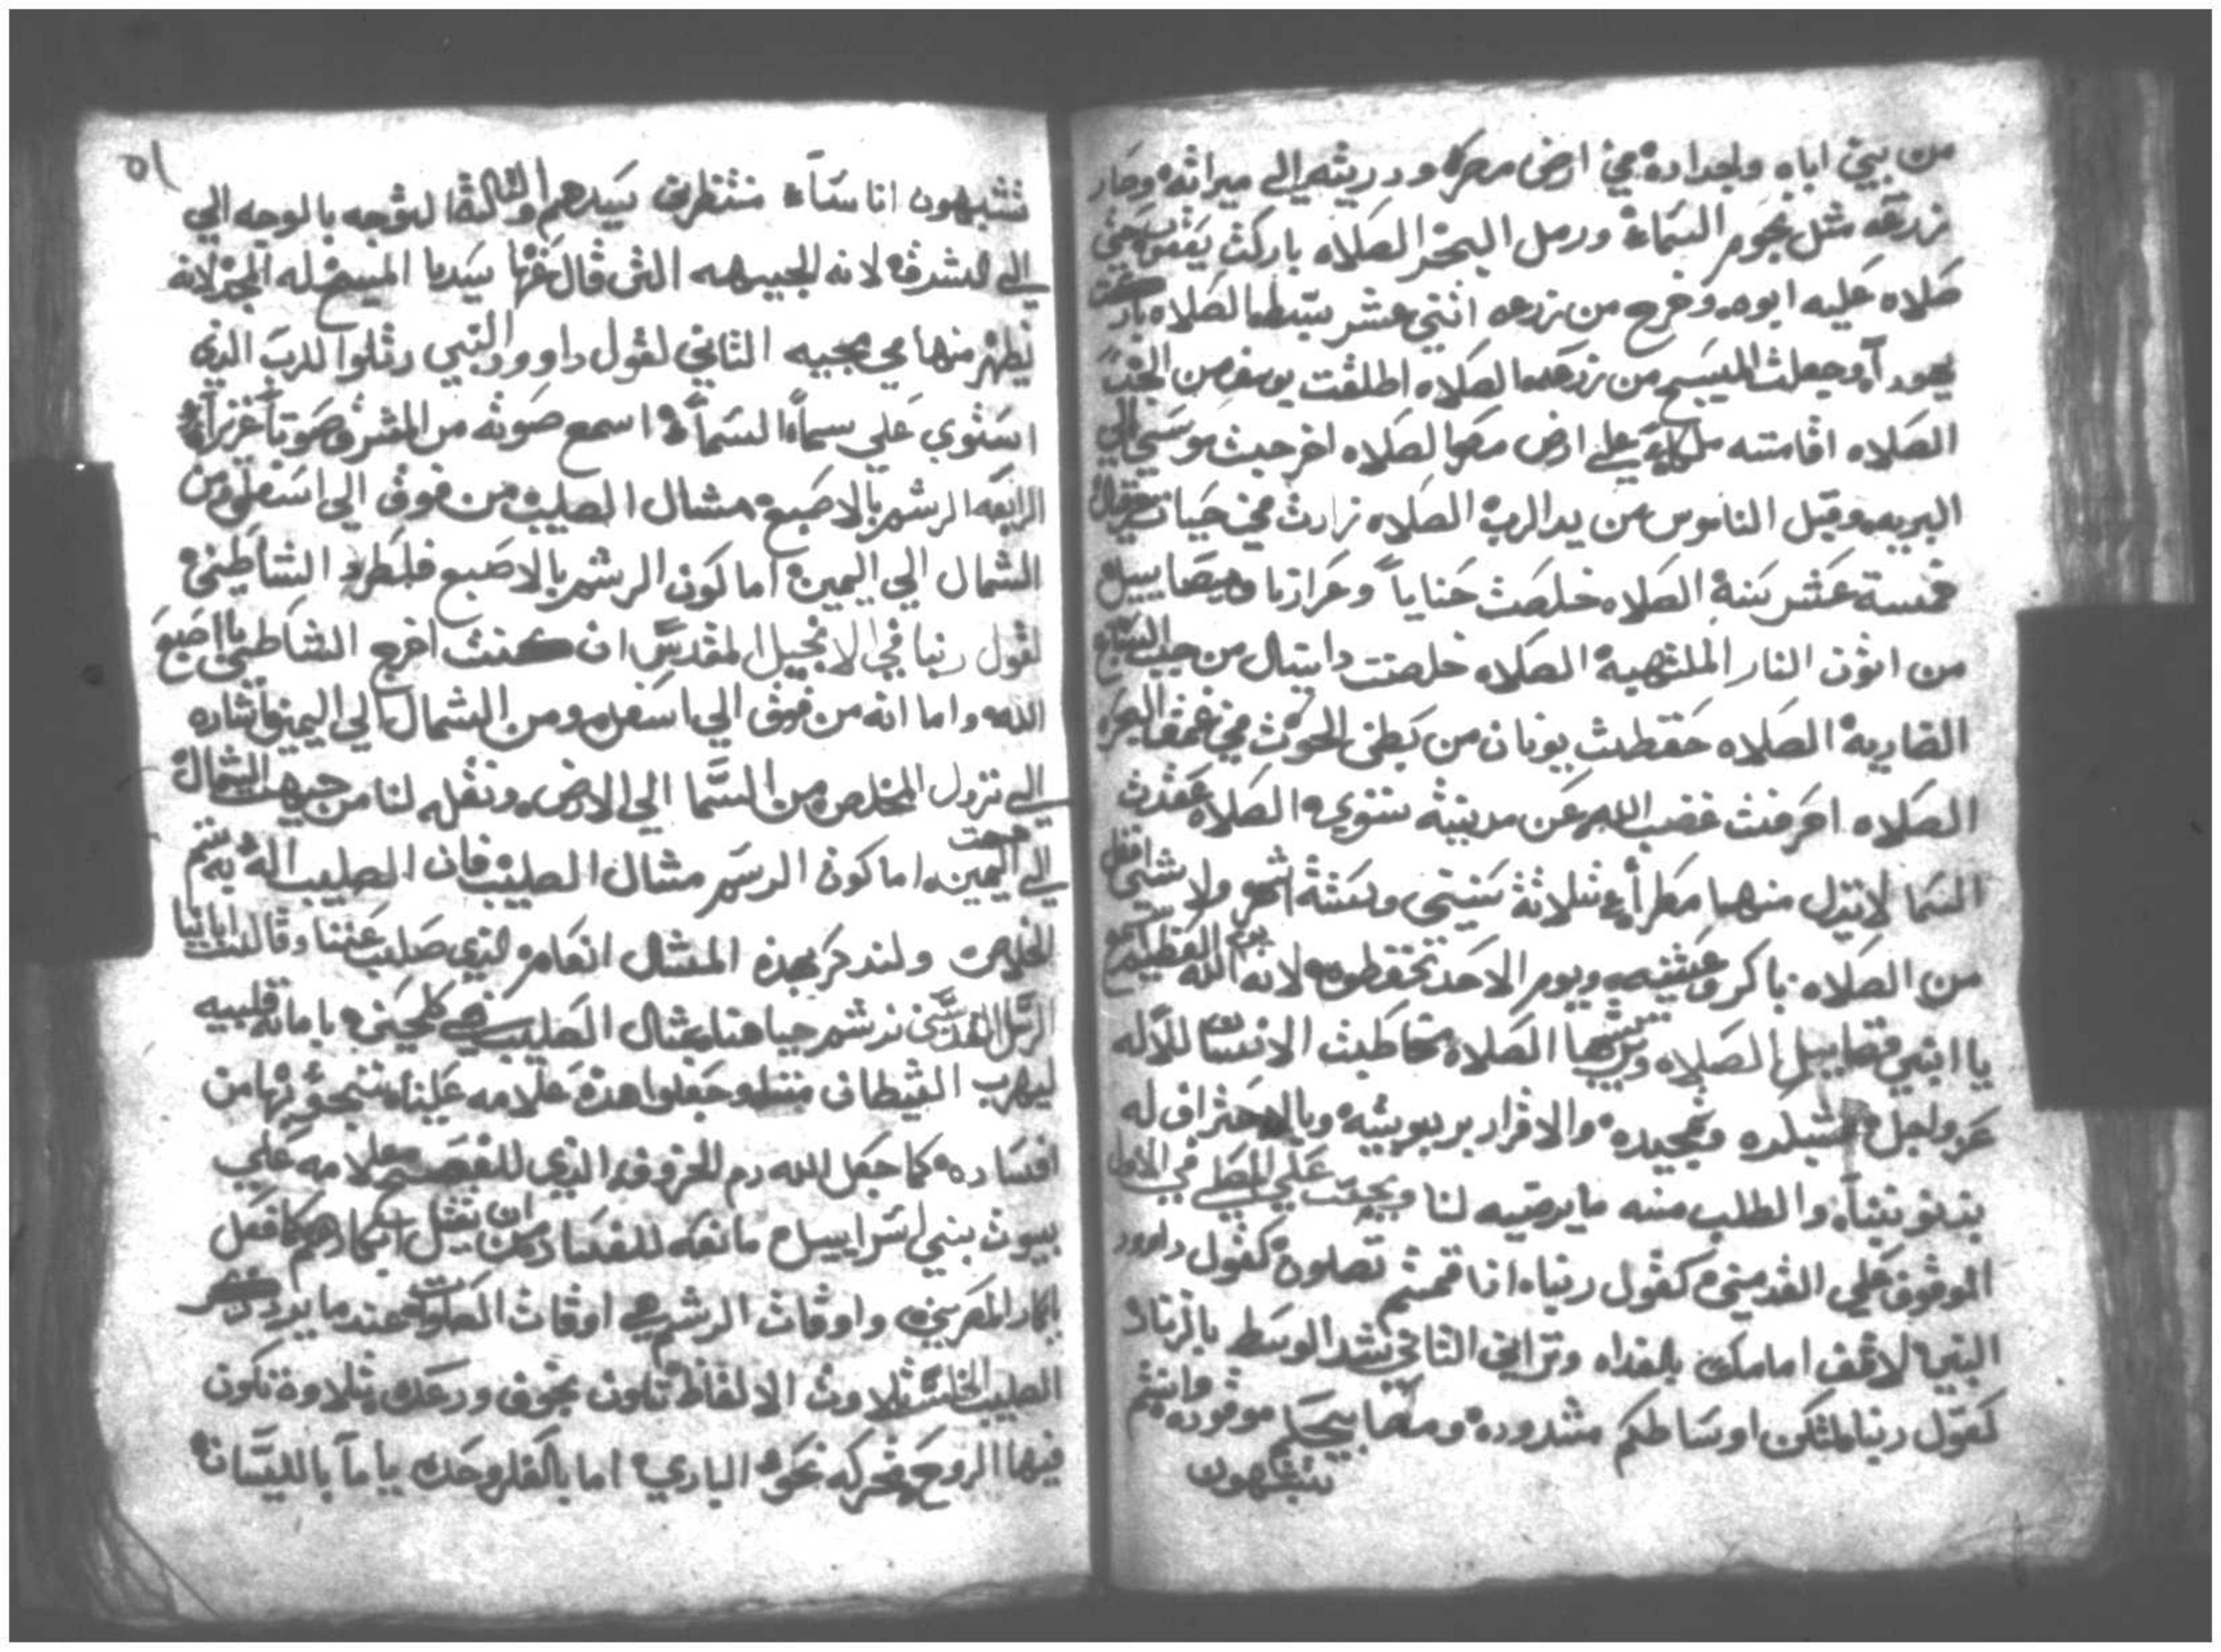 من بيتي اباه واجداده في ارض مصر ودريته الي ميراثه وصار
زرعه مثل نجوم السماء ورمل البحر الصلاه باركت يعقوب حتي
صلاه عليه ابوه وخرج من زرعه اثني عشر سبطا الصلاه باركت
يهودآ وجعلت المسيح من زرعه الصلاه اطلقت يوسف من الجب
الصلاه اقامته ملكا علي ارض مصر الصلاه اخرجت موسي الي
البريه وقبل الناموس من يد الرب الصلاه زادت في حيات حزقيا
خمسة عشر سنة الصلاه خلصت حنايا وعزاريا وميصاييل
من اتون النار الملتهبة الصلاه خلصت دانيال من جب السباع
الضارية الصلاه حفظت يونان من بطن الحوت في عمق البحر
الصلاه اصرفت غضب الله عن مدينة نينوي الصلاه عقدت
السما لا تنزل منها مطرأ ثلاثة سنين وستة اشهر ولا شي افضل
من الصلاه باكر وعشيه ويوم الاحد تحفظوه لانه يوم الله العظيم
يا ابني فضاييل الصلاه الصلاه تخاطبت الانسان للاله
عز وجل وتمجيده والاقرار بربوبيته وبالاعتراف له
بذنوبناآ والطلب منه ما يرضيه لنا ويجب علي المصلي في الاول
الوقوف علي القدمين كقول ربنا اذا قمتم تصلون كقول داوود
النبي لاقف امامك بالغداه وتراني الثاني شد الوسط بالزنار
كقول ربنا لتكن اوساطكم مشدودة ومصابيحكم موقوده وانتم
تتشبهون
٥١
تتشبهون اناساء منتظرين سيدهم والثالث التوجه بالوجه الي
الي الشرق لانه الجيهه التي قال عنها سيدنا المسيح له المجد لانه
يظهر منها في مجيه الثاني لقول داوود النبي رتلوا للرب الذي
استوي علي سماء السماء اسمع صوته من المشرق صوتا عزيزا
الرابعه الرشم بالاصبع مثال الصليب من فوق الي اسفل ومن
الشمال الي اليمين اما كون الرشم بالاصبع فلطرد الشاطين
لقول ربنا في الانجيل المقدس ان كنت اخرج الشاطين باصبع
الله واما انه من فوق الي اسفل ومن الشمال الي اليمين اشاره
الي نزول المخلص من السما الي الارض ونقله لنا من جيهت الشمال
الي جهت اليمين اما كون الرسم مثال الصليب فان الصليب اله به تم
الخلاص ولنذكر بهذه المثال انعامه الذي صلب عننا وقالت ابانيا
الرسل القديسين نرشم جباهنا بمثال الصليب في كلحين بامانه قلبيه
ليهرب الشيطان مننا وجعلوا هذه علامه علينا ننجو بها من
افساده كما جعل الله دم الخروف الذي للفصح علامه علي
بيوت بني اسراييل مانعه للفساد من ان يقتل ابكارهم كما فعل
بابكار المصريين واوقات الرشم في اوقات الصلوات عند ما يرد ذكر
الصليب تلاوت الالفاظ تكون بخوف ورعده بتلاوة تكون
فيها الروح متحركه نحو الباري اما بالفكر وحده يا ما باللسان